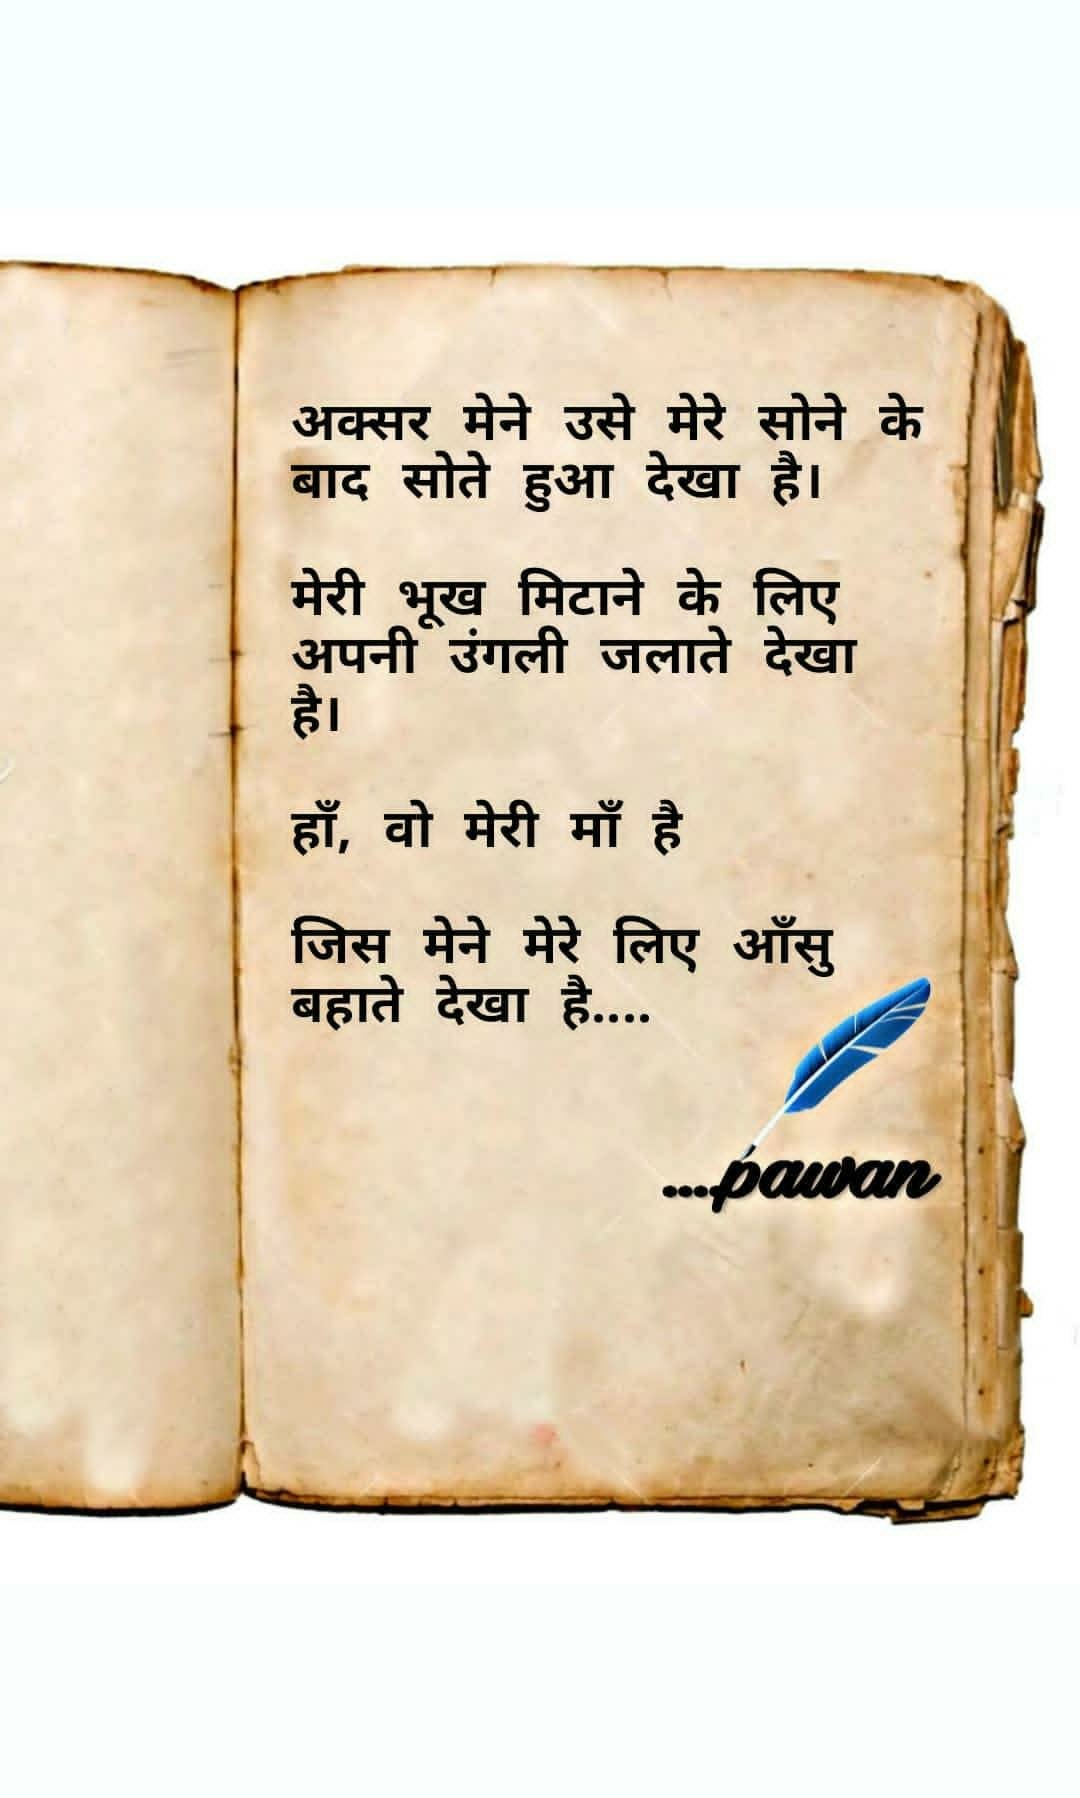 अक्सर मेने उसे मेरे सोने के
बाद सोते हुआ देखा है।
मेरी भूख मिटाने के लिए
अपनी उंगली जलाते देखा
है।
हाँ, वो मेरी माँ है
जिस मेने मेरे लिए आँसु
बहाते देखा है....
....pawan